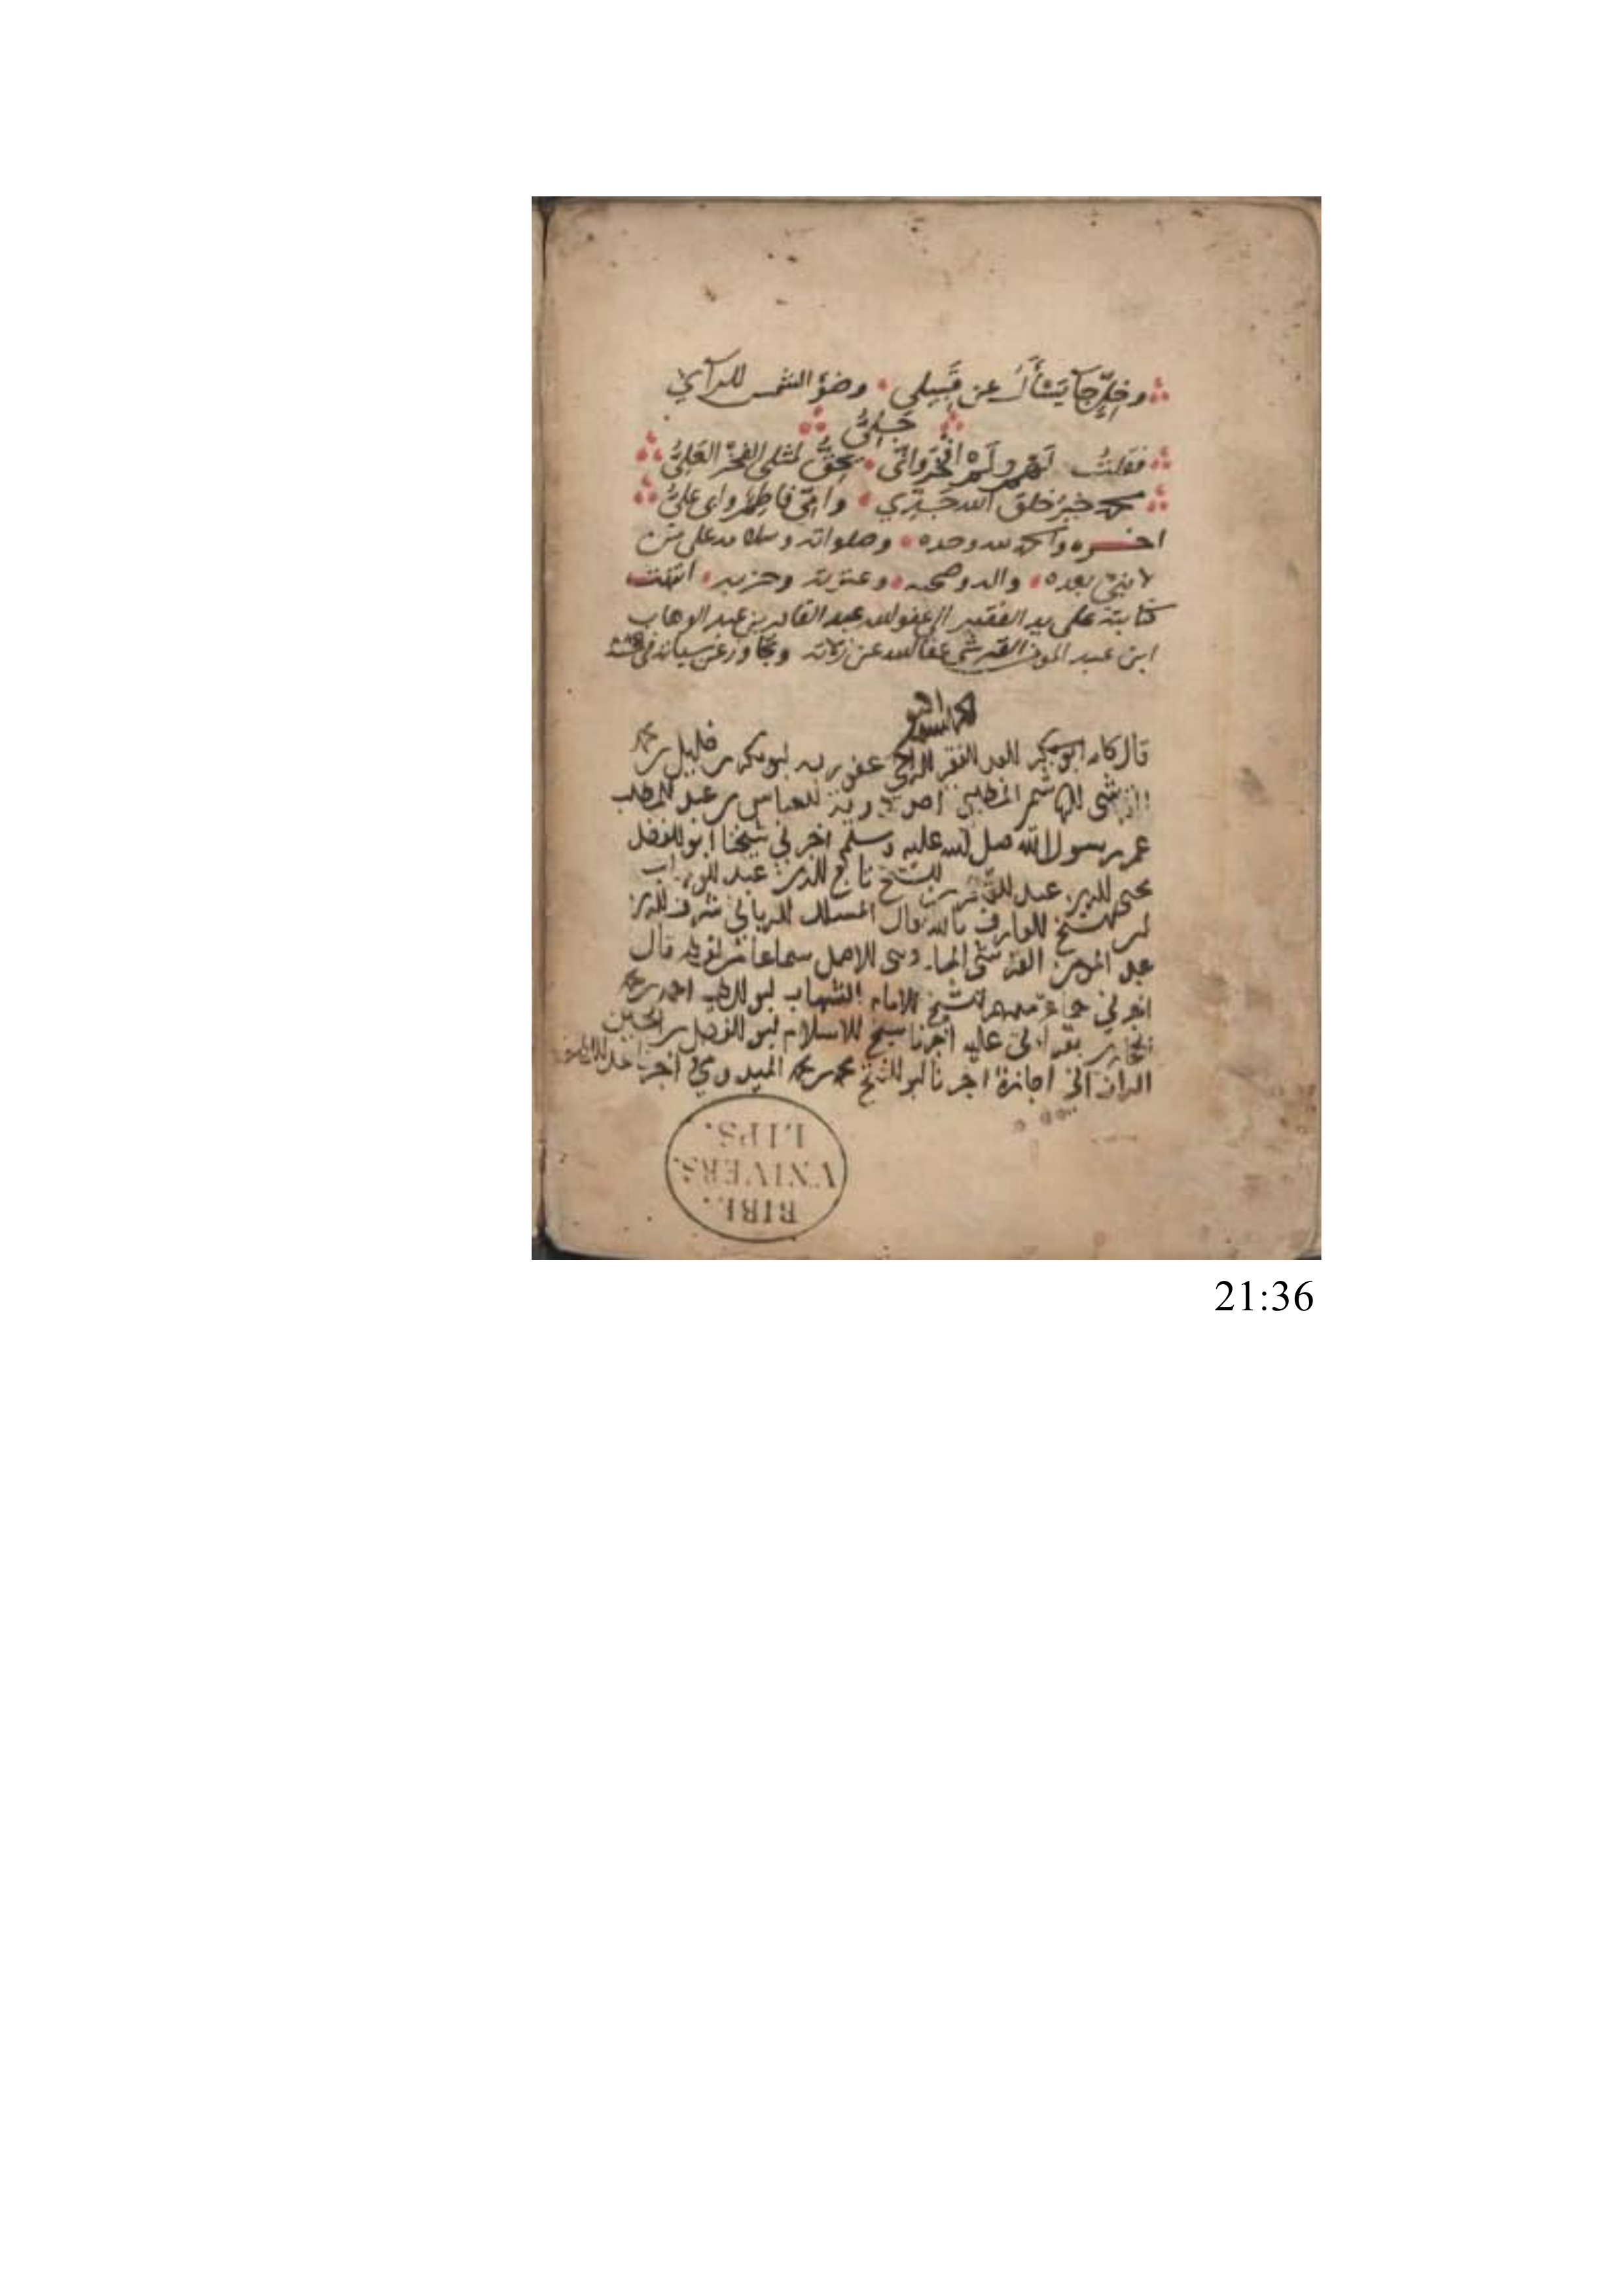 وخِلٍّ جآ يَسْأَلُ عن قَبِيلي وضؤ الشمس للرآي
جَلِيُّ
فقلتُ لهم ولم افخَر واني يَحِقُّ لمثلي الفخرُ العَلِيُّ
محمد خيرُ خلق الله جَدِّي وامّي فاطِمٌ وابي عليُّ
اخره والحمد لله وحده وصلواته وسلامه على من
لا نبي بعده واله وصحبه وعترته وحزبه انتهت
كتابته على يد الفقير الى عفو الله عبد القادر بن عبد الوهاب
ابن عبد المومن القرشي عفا الله عن زلاته وتجاوز عن سياته في سنة
قال كاتبه ابو بكر العبد الفقير الراجي عفو ربه ابو بكر بن خليل بن محمد
الهاشمي المطلبي العباس بن عبد المطلب
عم رسول الله صلى الله عليه وسلم اخبرني شيخنا ابو الفضل
محيى الدين عبد القادر بن الشيخ تاج الدين عبد الوهاب
الشيخ العارف بالله المسلك الرباني شرف الدين
عبد المومن القرشي الاصل سماعا من لفظه قال
اخبرني جماعة منهم الشيخ الامام الشهاب ابو الطيب احمد بن محمد
الحجازي بقراءتي عليه اخبرنا شيخ الاسلام ابو الفضل بن الحسين
العراقي اجازة اخبرنا ابو الفتح محمد بن محمد الميدومي اخبرنا
BIBL.
VNIVERS.
LIPS.
21:36